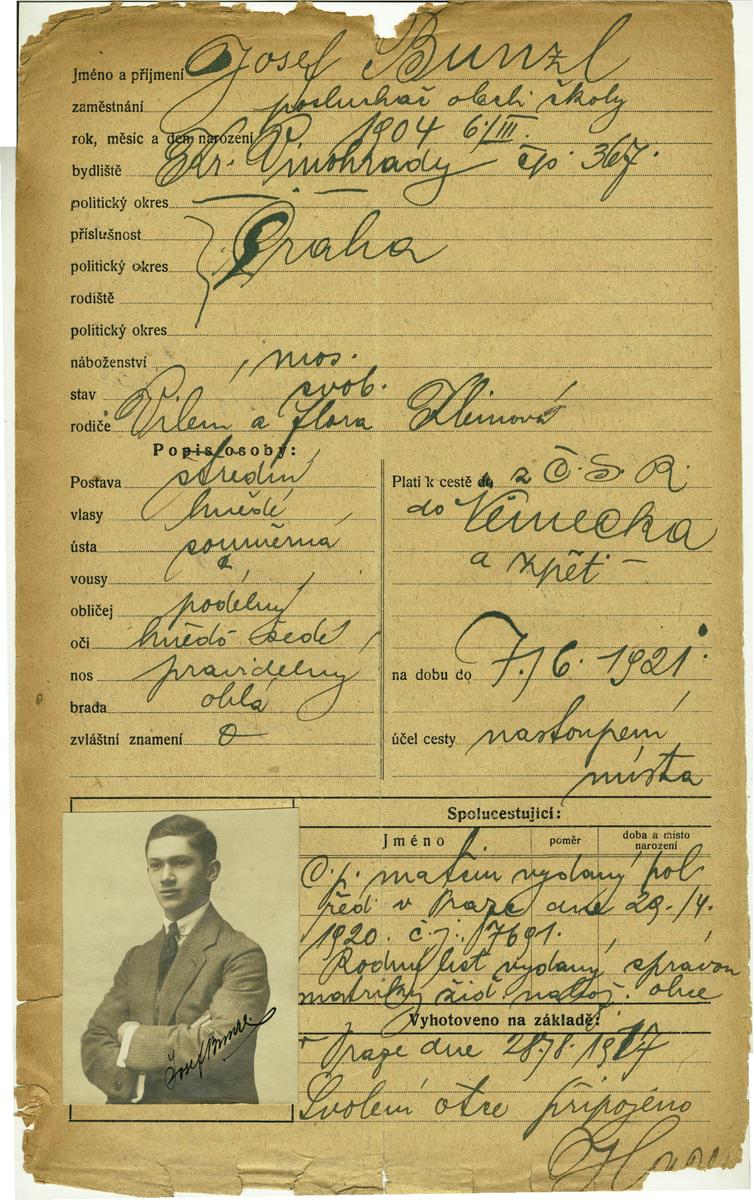 Jméno a příjmení Josef Bunzl
zaměstnání posluchač obch školy
rok, měsíc a den narození 1904 6/III.
bydliště Kr. Vinohrady čp. 367.
politický okres
příslušnost Praha
politický okres
rodiště
politický okres
náboženství mos.
stav svob.
rodiče Vilem a Flora Kleinová
Popis osoby:
Postava střední
vlasy hnědé
ústa souměrná
vousy
obličej podélný
oči hnědo šedé
nos pravidelný
brada oblá
zvláštní znamení 0
Platí k cestě z Č. S. R.
do Německa
a zpět –
na dobu do 7./6. 1921.
účel cesty nastoupení
místa
Spolucestující:
Jméno poměr doba a místo narození
C. p. vydaný pol
řed. v Praze dne 29./4.
1920. č. j. 7691.
Rodný list vydaný správou
matriky žid. nábož. obce
Vyhotoveno na základě:
v Praze dne 28./8. 1917
Svolení otce připojeno
Josef Bunzl